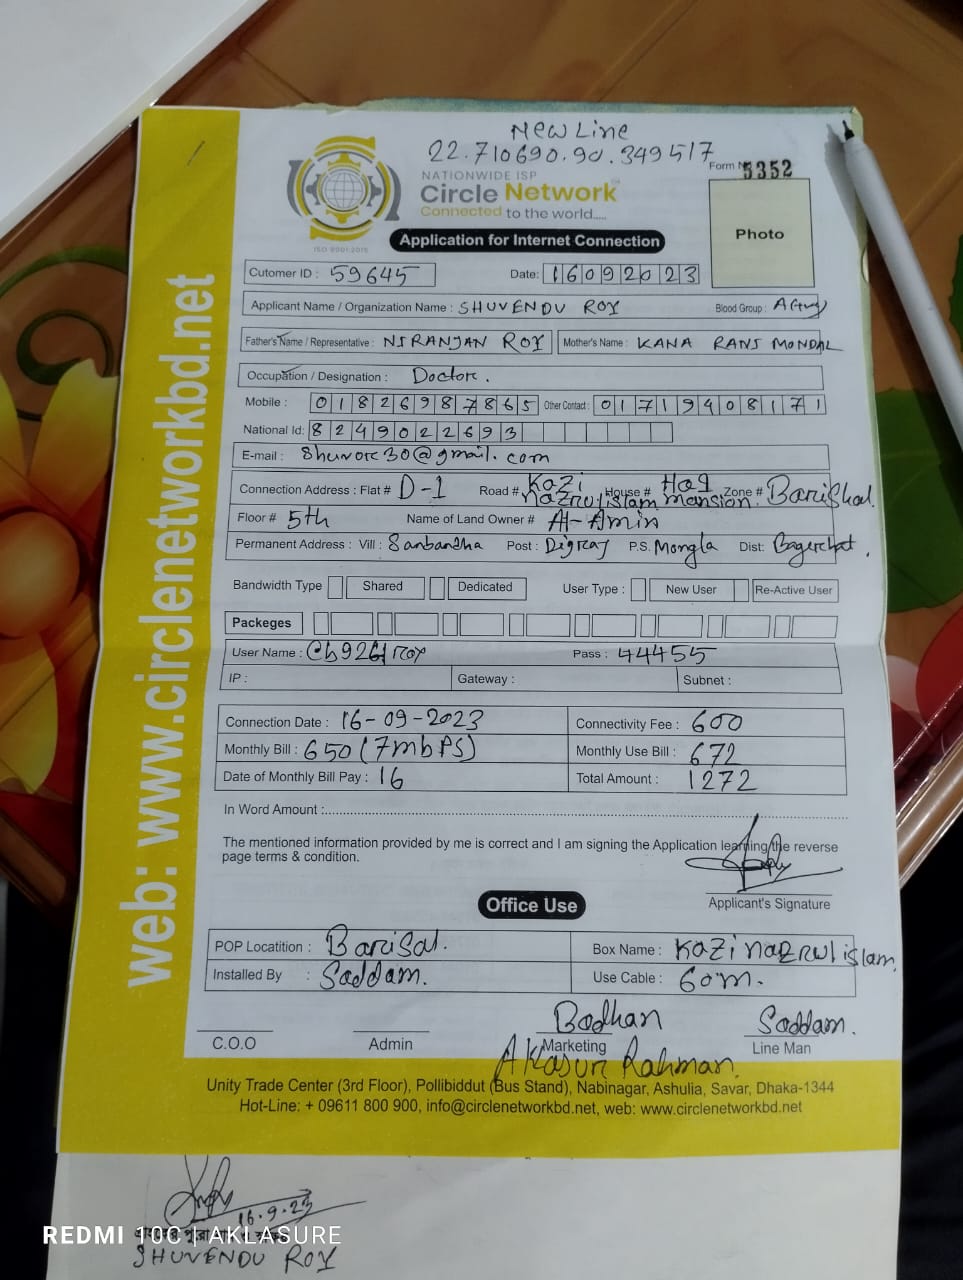 New Line
22.710690.90.349517
NATIONWIDE ISP
Form N 5352
Circle Network
Connected to the world.....
ISO 9001:2015
Photo
Application for Internet Connection
Cutomer ID : 59645 Date: 16092023
Applicant Name / Organization Name : SHUVENDU ROY Blood Group :
Father's Name / Representative : NIRANJAN ROY Mother's Name : KANA RANI MONDAL
Occupation / Designation : Doctor.
Mobile : 01826987865 Other Contact : 01719408171
National Id: 8249022693
E-mail : Shuvore30@gmail.com
Connection Address : Flat # D-1 Road # Kazi Nazrul islam House # Haq mansion. Zone # Barishal.
Floor # 5th Name of Land Owner # Al-Amin
Permanent Address : Vill : Sanbandha Post : Digraj P.S. Mongla Dist: Bagerhat.
Bandwidth Type Shared Dedicated User Type : New User Re-Active User
Packeges
User Name : Pass : 44455
IP : Gateway : Subnet :
Connection Date : 16-09-2023 Connectivity Fee : 600
Monthly Bill : 650 (7mbPS) Monthly Use Bill : 672
Date of Monthly Bill Pay : 16 Total Amount : 1272
In Word Amount :
The mentioned information provided by me is correct and I am signing the Application learning the reverse
page terms & condition.
Applicant's Signature
Office Use
POP Locatition : Barisal. Box Name : Kazi nazrul islam
Installed By : Saddam. Use Cable : 60m.
Bodhan Saddam.
C.O.O Admin Marketing Line Man
Aklasur Rahman.
Unity Trade Center (3rd Floor), Pollibiddut (Bus Stand), Nabinagar, Ashulia, Savar, Dhaka-1344
Hot-Line: + 09611 800 900, info@circlenetworkbd.net, web: www.circlenetworkbd.net
web: www.circlenetworkbd.net
16.9.23
REDMI 10C | AKLASURE
SHUVENDU ROY